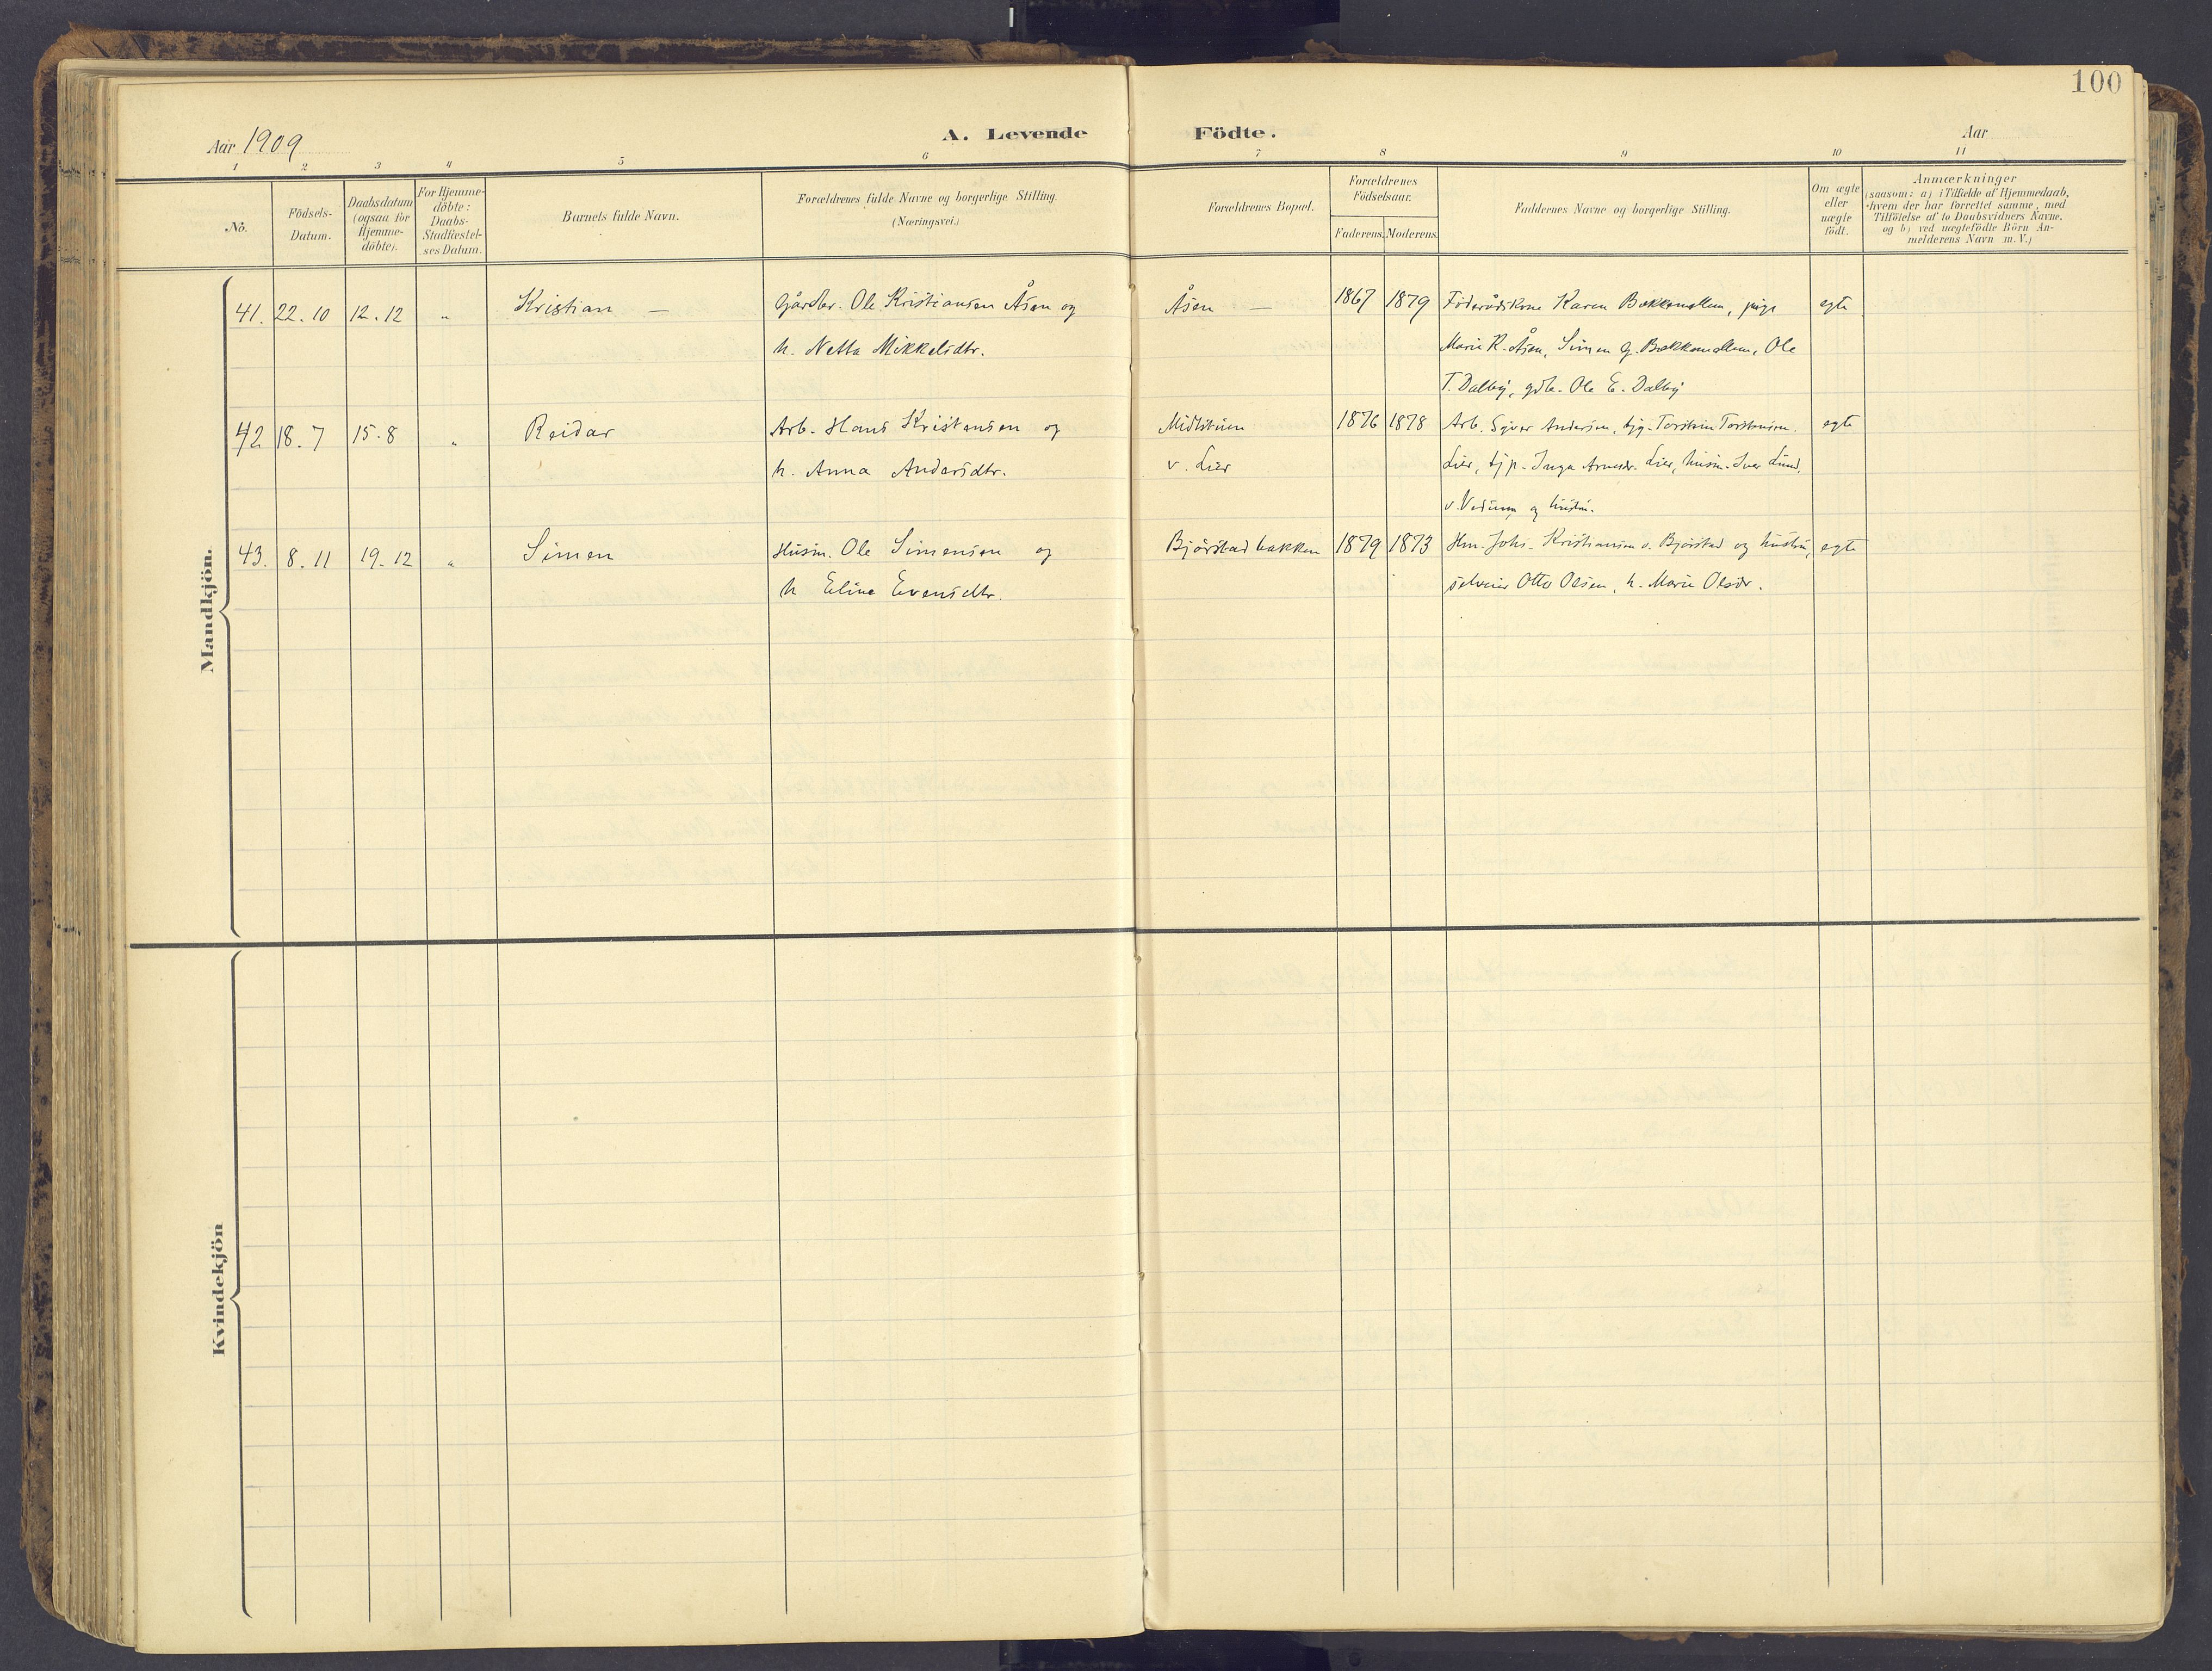 100
Aar 1909
A. Levende Födte.
Aar
1 2 3 4 5 6 7 8 9 10 11
No.
Födsels-
Datum.
Daabsdatum
(ogsaa for
Hjemme-
döbte).
For Hjemme-
döbte:
Daabs-
Stadfæstel-
ses Datum.
Barnets fulde Navn.
Forældrenes fulde Navne og borgerlige Stilling.
(Næringsvei.)
Forældrenes Bopæl.
Forældrenes
Födselsaar.
Faderens. Moderens.
Faddernes Navne og borgerlige Stilling.
Om ægte
eller
uægte
födt.
Anmærkninger
(saasom: a) i Tilfælde af Hjemmedaab,
hvem der har forrettet samme, med
Tilföielse af to Daabsvidners Navne.
og b) ved uægtefödte Börn An-
melderens Navn m. V.)
Mandkjön.
41. 22.10 12.12 „ Kristian — Gårdbr. Ole Kristiansen Åsen og Åsen — 1867 1879 Föderådskone Karen Bækkemellem, pige egte
h. Netta Mikkelsdtr. Marie K. Åsen, Simen G. Bækkemellem, Ole
T. Dalby, gdb. Ole E. Dalby
42 18.7 15.8 „ Reidar Arb. Hans Kristensen og Midtstuen 1876 1878 Arb. Syver Andersen, tjg. Torstein Torstensen. egte
h. Anna Andersdtr. v. Lier Lier, tjp. Inga Arnesdr. Lier, husm. Iver Lund,
v. Vedum og hustru.
43. 8.11 19.12 „ Simen Husm. Ole Simensen og Bjørstadbakken 1879 1873 Hm. Johs. Kristiansen v. Bjørstad og hustru, egte
h Eline Evensdtr. selveier Otto Olsen, h. Marie Olsdr.
Kvindekjön